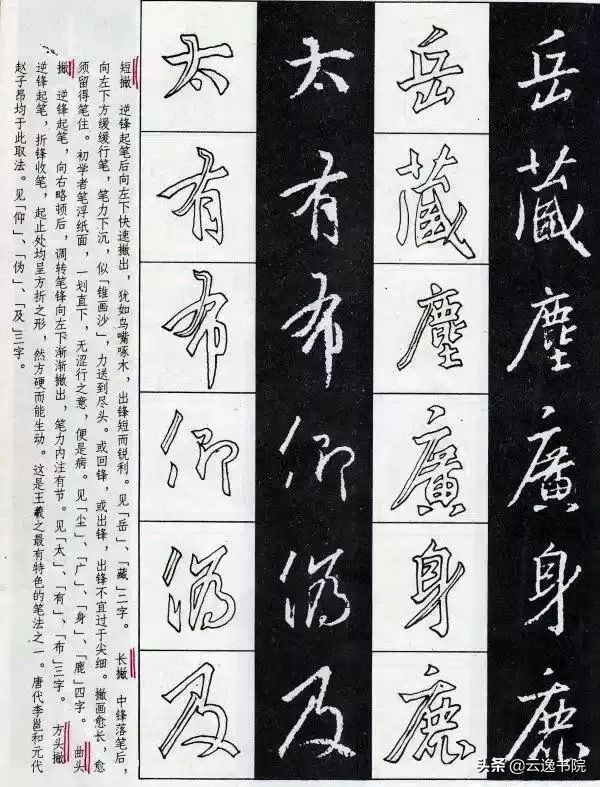 岳藏塵廣身鹿
岳藏塵廣身鹿
太有布仰偽及
太有布仰偽及
短撇 逆锋起笔后向左下快速撇出，犹如鸟嘴啄木，出锋短而锐利。见「岳」、「藏」二字。 长撇 中锋落笔后，
向左下方缓缓行笔，笔力下沉，似「锥画沙」，力送到尽头。或回锋，或出锋，出锋不宜过于尖细。撇画愈长，愈
须留得笔住。初学者笔浮纸面，一划直下，无涩行之意，便是病。见「尘」、「广」、「身」、「鹿」四字。 曲头
撇 逆锋起笔，向右略顿后，调转笔锋向左下渐渐撇出，笔力内注有节。见「太」、「有」、「布」三字。 方头撇
逆锋起笔，折锋收笔，起止处均呈方折之形，然方硬而能生动。这是王羲之最有特色的笔法之一。唐代李邕和元代
赵子昂均于此取法。见「仰」、「伪」、「及」三字。
头条 @云逸书院